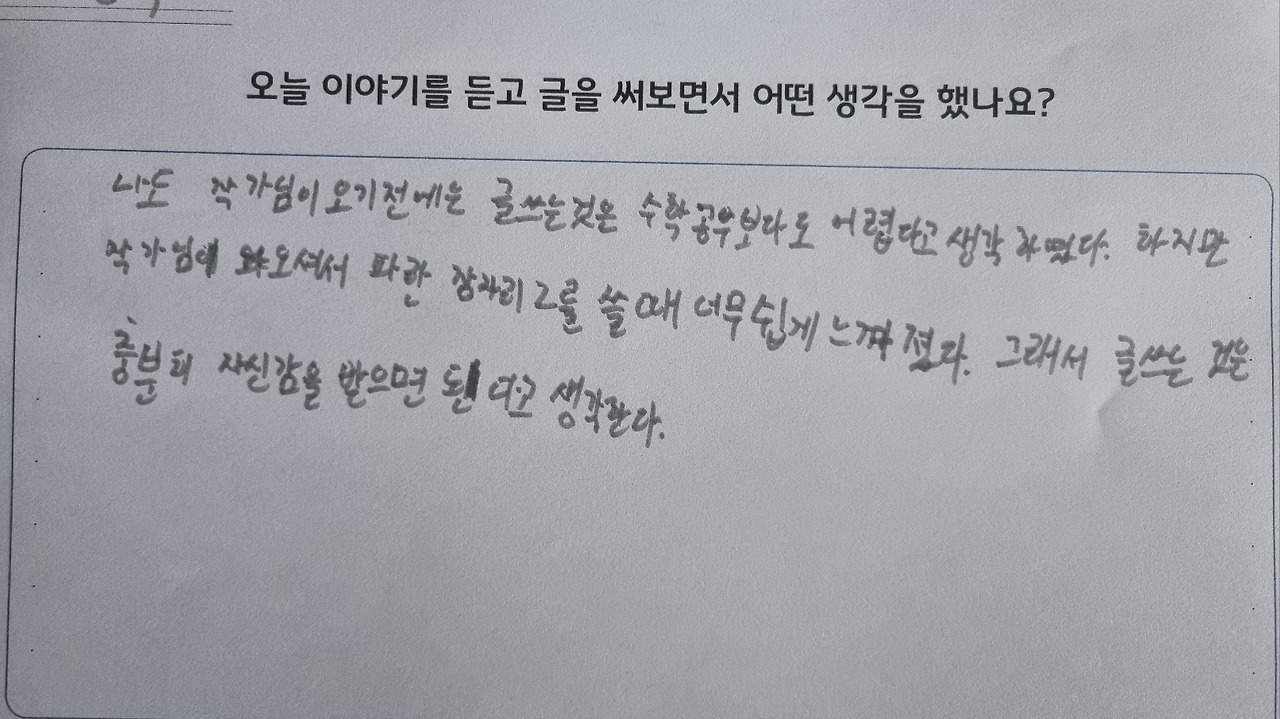 오늘 이야기를 듣고 글을 써보면서 어떤 생각을 했나요?
나도 작가님이 오기전에는 글쓰는것은 수학공부보다도 어렵다고 생각 하였다. 하지만
작가님이 와오셔서 파란 장자리 2를 쓸 때 너무 쉽게 느껴졌다. 그래서 글쓰는 것은
충분히 자신감을 받으면 된다고 생각한다.